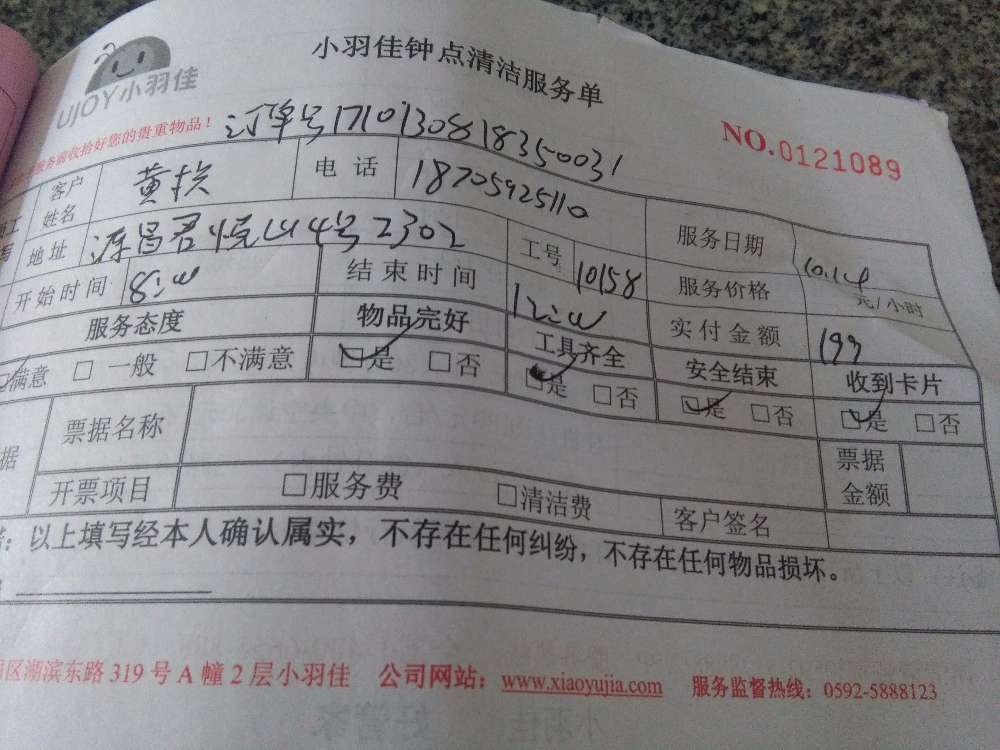 小羽佳钟点清洁服务单
UJOY小羽佳
服务前收拾好您的贵重物品！ 订单号1710130818350031 NO.0121089
客户姓名 黄 电话 18705925110 服务日期 10.14
地址 源昌君悦山4号2302 工号 10158 服务价格 元/小时
开始时间 8:00 结束时间 12:00 实付金额 199
服务态度 物品完好 工具齐全 安全结束 收到卡片
满意 □ 一般 □不满意 □是 □否 □是 □否 □是 □否 □是 □否
据 票据名称 票据金额
开票项目 □服务费 □清洁费 客户签名
：以上填写经本人确认属实，不存在任何纠纷，不存在任何物品损坏。
区湖滨东路 319 号 A 幢 2 层小羽佳 公司网站：www.xiaoyujia.com 服务监督热线：0592-5888123